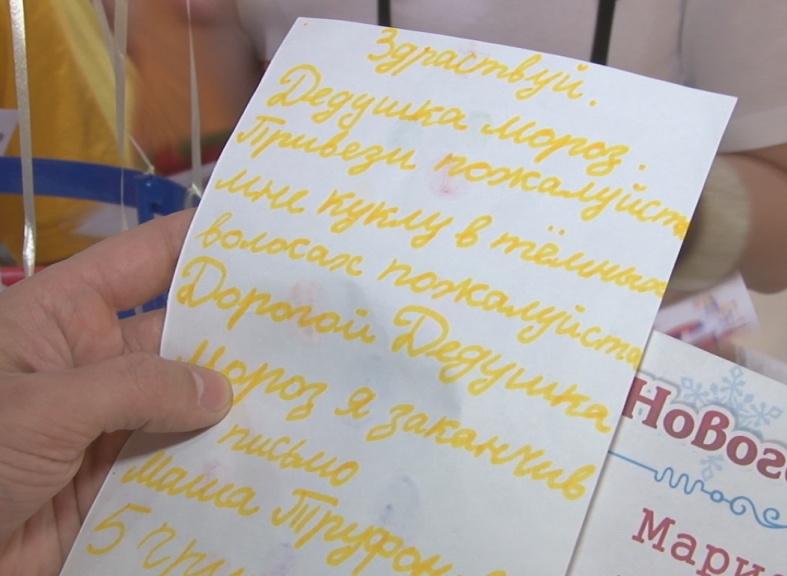 Здраствуй.
Дедушка мороз.
Привези пожалуйста
мне куклу в тёмных
волосах пожалуйста
Дорогой Дедушка
Мороз я заканчив
письмо
Маша Труфон
5 гру
Новог
Мари